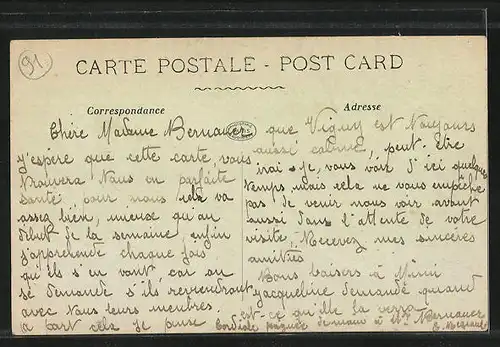 91
CARTE POSTALE - POST CARD
Correspondance
Adresse
Chère Madame Bernauer
j'espère que cette carte, vous
trouvera tous en parfaite
santé pour nous cela va
assez bien, mieux qu'au
début de la semaine, enfin
j'appréhende chaque fois
qu'ils s'en vont, car on
se demande s'ils reviendront
avec tous leurs membres.
a part cela je pense
que Vigny est toujours
aussi calme, peut-être
irai-je, vous voir d'ici quelque
temps mais cela ne vous empêche
pas de venir nous voir avant
aussi dans l'attente de votre
visite, Recevez mes sincères
amitiés
Bons baisers à Mimi
Jacqueline demande quand
est-ce qu'elle la verra
Cordiale poignée de main à Mr Bernauer